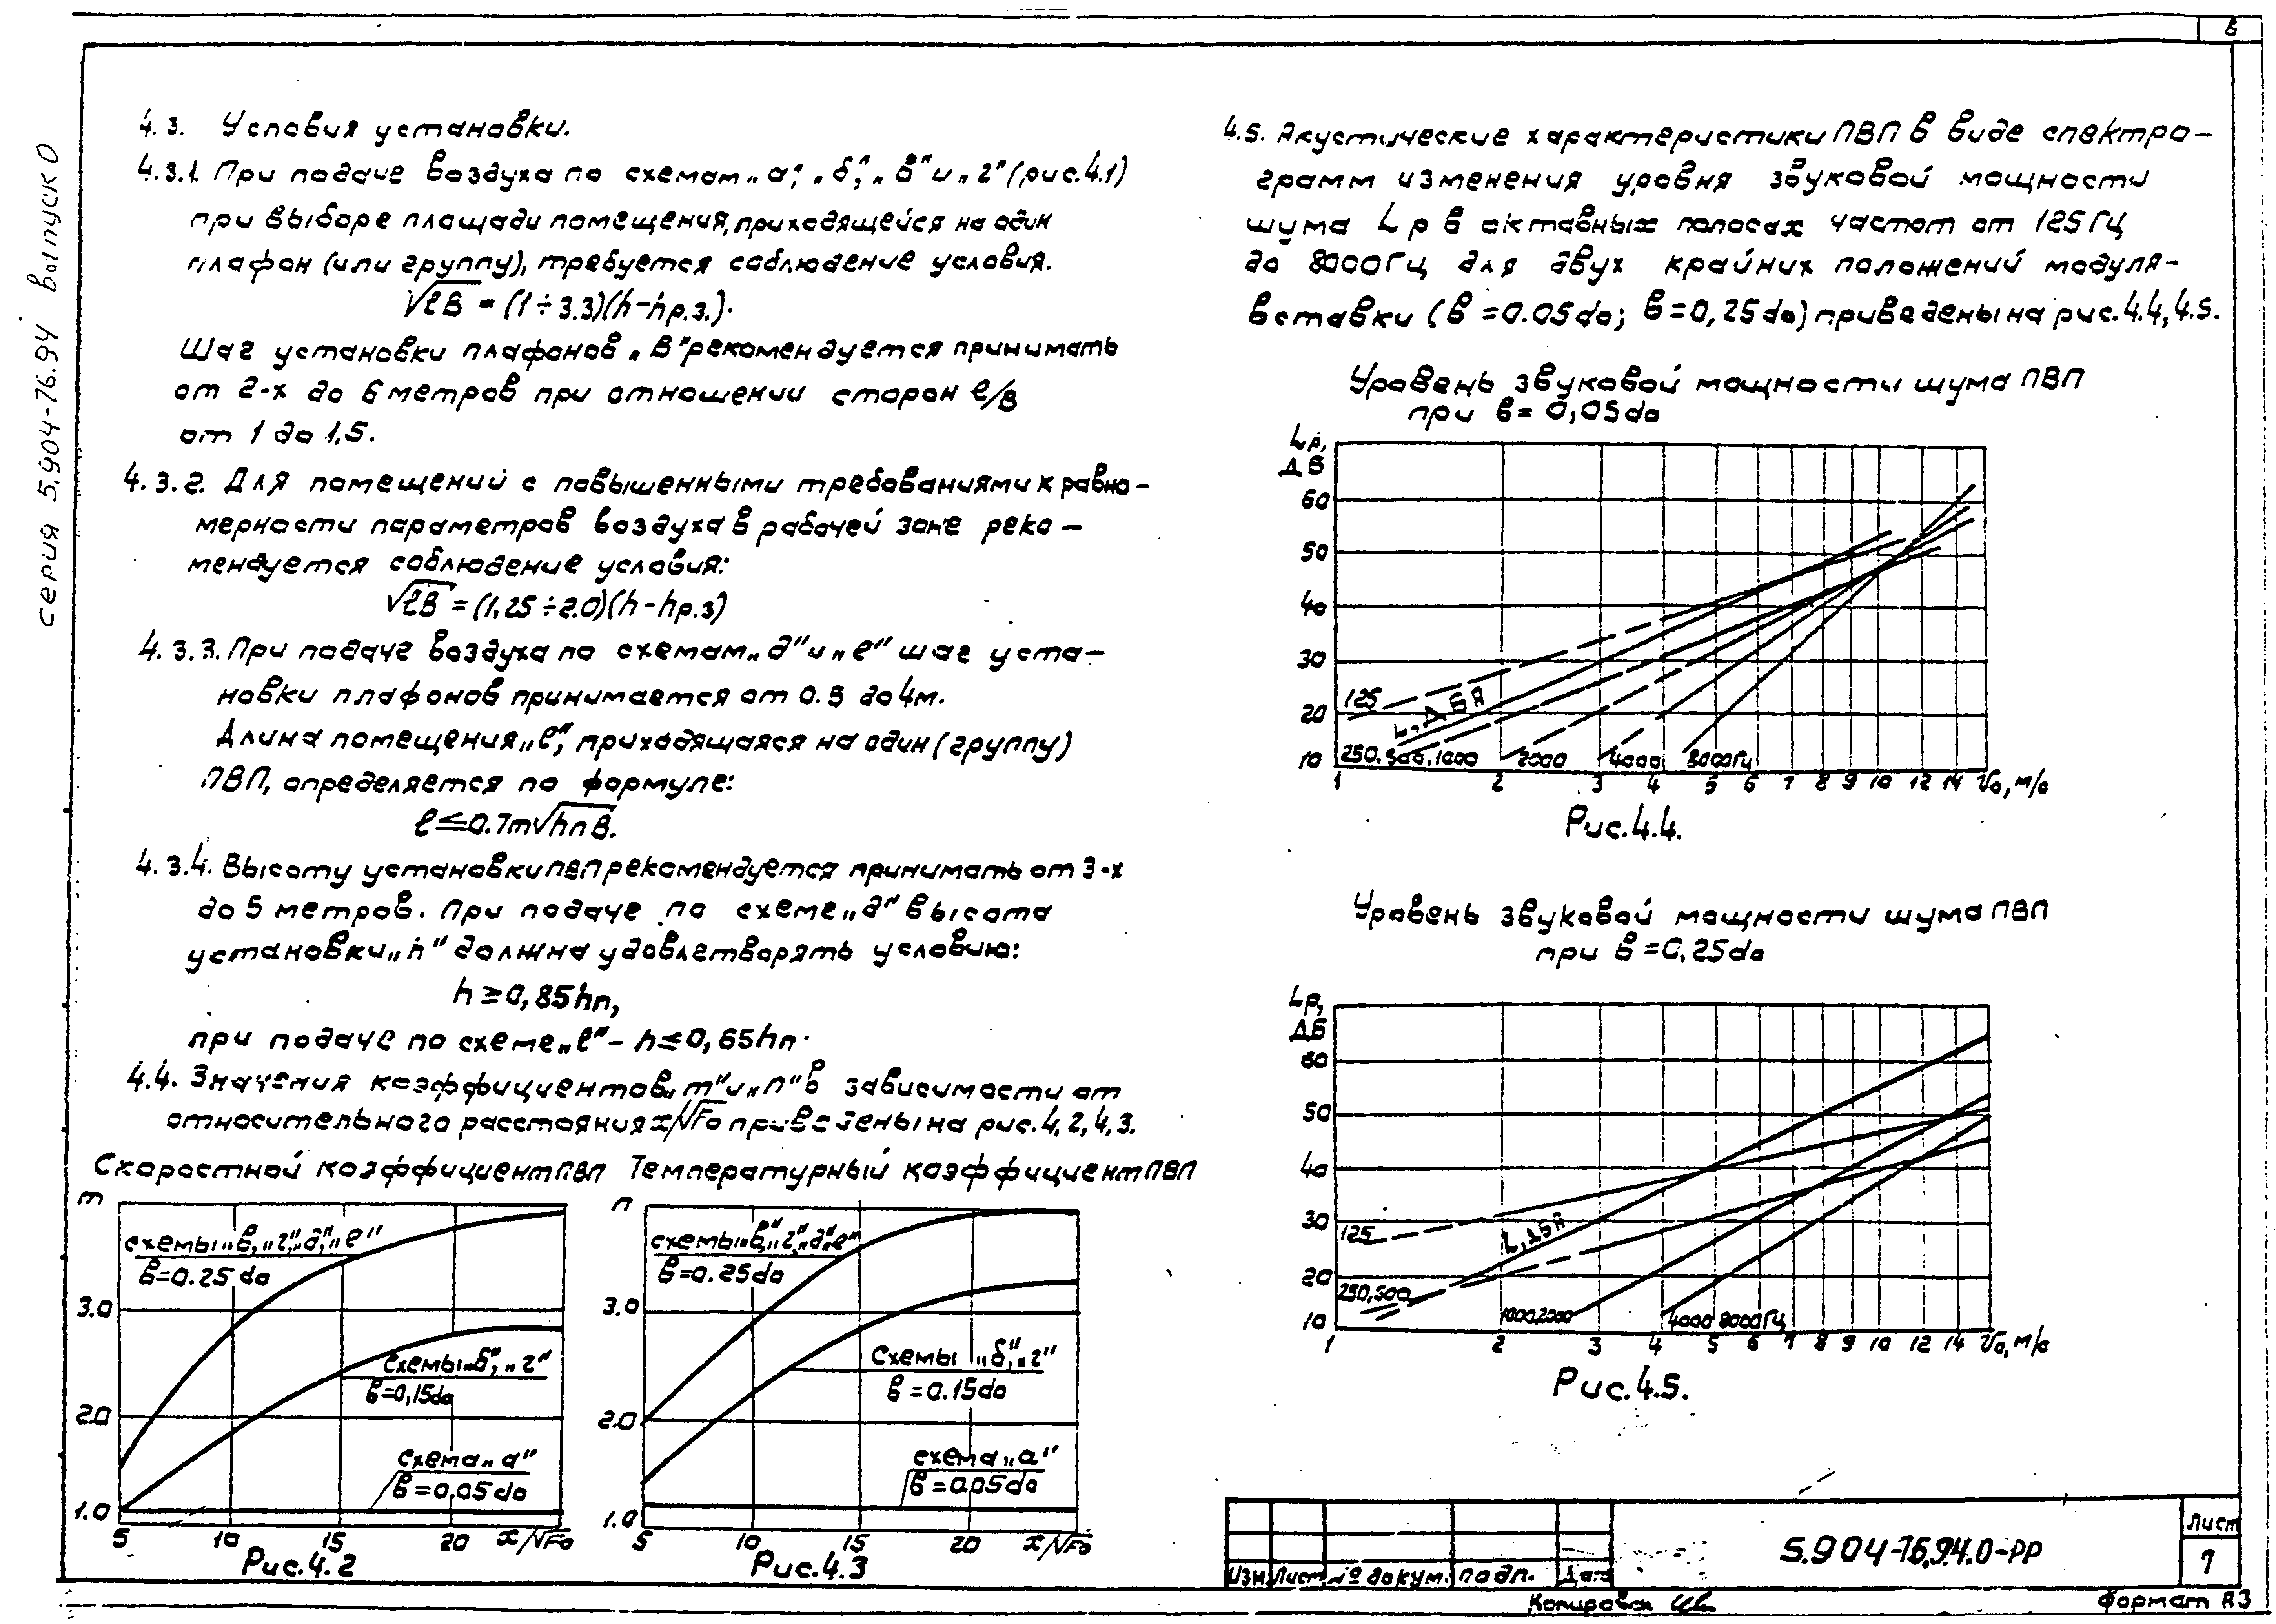 6
серия 5.904-76.94 выпуск 0
4.3. Условия установки.
4.3.1. При подаче воздуха по схемам „а", „б", „в" и „г" (рис.4.1)
при выборе площади помещения, приходящейся на один
плафон (или группу), требуется соблюдение условия.
√ℓB = (1÷3.3)(h-hр.з.).
Шаг установки плафонов „B" рекомендуется принимать
от 2-х до 6 метров при отношении сторон ℓ/B
от 1 до 1,5.
4.3.2. Для помещений с повышенными требованиями к равно-
мерности параметров воздуха в рабочей зоне реко-
мендуется соблюдение условия:
√ℓB = (1,25÷2.0)(h-hр.з)
4.3.3. При подаче воздуха по схемам „д" и „е" шаг уста-
новки плафонов принимается от 0.8 до 4м.
Длина помещения „ℓ", приходящаяся на один (группу)
ПВП, определяется по формуле:
ℓ≤0.7m√hпB.
4.3.4. Высоту установки ПВП рекомендуется принимать от 3-х
до 5 метров. При подаче по схеме „д" высота
установки „h" должна удовлетворять условию:
h≥0,85hп,
при подаче по схеме „е" - h≤0,65hп.
4.4. Значения коэффициентов „m" и „n" в зависимости от
относительного расстояния x/√Fо приведены на рис.4.2, 4.3.
Скоростной коэффициент ПВП
m
схемы „в", „г", „д", „е"
в=0.25dо
3.0
схемы „б", „г"
в=0,15dо
2.0
схема „а"
в=0,05dо
1.0
5 10 15 20 x/√Fо
Рис.4.2
Температурный коэффициент ПВП
n
схемы „в", „г", „д", „е"
в=0.25dо
3.0
схемы „б", „г"
в=0.15dо
2.0
схема „а"
в=0.05dо
1.0
5 10 15 20 x/√Fо
Рис.4.3
4.5. Акустические характеристики ПВП в виде спектро-
грамм изменения уровня звуковой мощности
шума Lр в октавных полосах частот от 125Гц
до 8000Гц для двух крайних положений модуля-
вставки (в=0.05dо; в=0,25dо) приведены на рис.4.4, 4.5.
Уровень звуковой мощности шума ПВП
при в=0,05dо
Lр,
дБ
60
50
40
30
20
10
125
L, дБА
250,500,1000 2000 4000 8000Гц
1 2 3 4 5 6 7 8 9 10 12 14 Vо, м/с
Рис.4.4.
Уровень звуковой мощности шума ПВП
при в=0,25dо
Lр,
дБ
60
50
40
30
20
10
125
L, дБА
250,500
1000,2000 4000 8000Гц
1 2 3 4 5 6 7 8 9 10 12 14 Vо, м/с
Рис.4.5.
Изм Лист № докум. подп. Дата
5.904-76.94.0-РР
Лист
7
Копировал
Формат А3